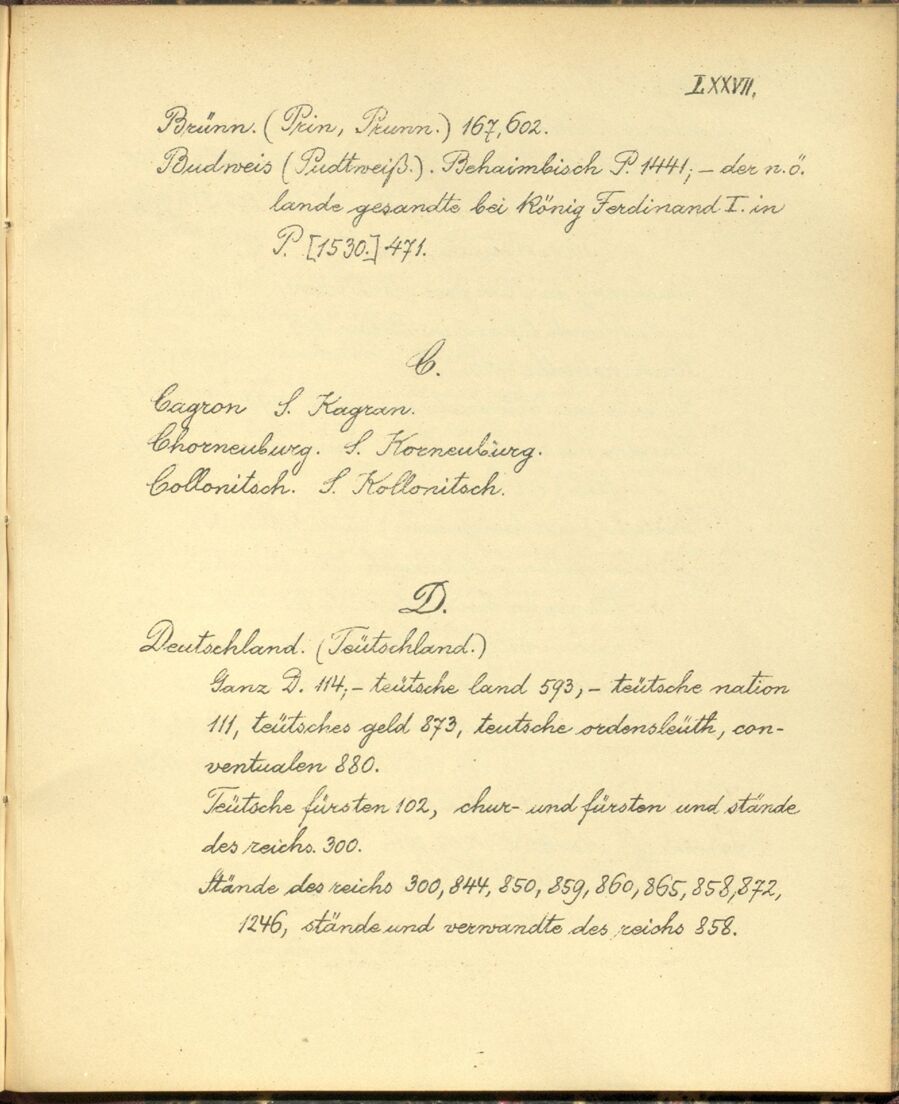 LXXVII.
Brünn. (Prin, Prunn.) 167, 602.
Budweis (Pudtweiß.). Behaimbisch P. 1441; – der n. ö.
lande gesandte bei König Ferdinand I. in
P. [1530.] 471.
C.
Cagron S. Kagran.
Chorneuburg. S. Korneuburg.
Collonitsch. S. Kollonitsch.
D.
Deutschland. (Teütschland.)
Ganz D. 114; – teütsche land 593, – teütsche nation
111, teütsches geld 873, teutsche ordensleüth, con-
ventualen 880.
Teütsche fürsten 102, chur- und fürsten und stände
des reichs. 300.
Stände des reichs 300, 844, 850, 859, 860, 865, 858, 872,
1246, stände und verwandte des reichs 858.